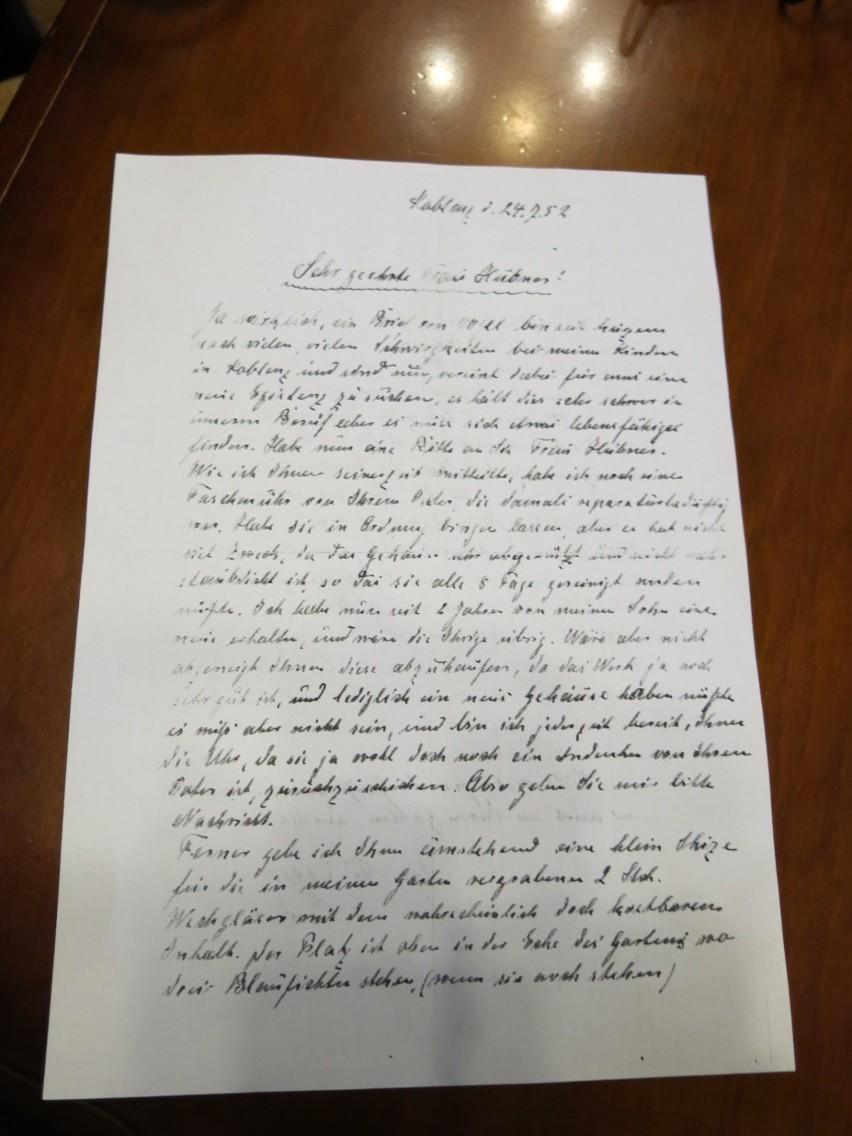 Koblenz d. 24.7.52
Sehr geehrte Frau Hübner!
Ja wirklich, ein Brief von Voll bin seit
nach vielen, vielen Schwirigkeiten bei meinen Kinder
in Koblenz und sind nun, vereint dabei für uns eine
neue Existenz zu suchen, es hält dies sehr schwer in
unserm Beruf aber es muss sich etwas lebensfähiges
finden. Habe nun eine Bitte an Sie Frau Hübner.
Wie ich Ihnen seinerzeit mitteilte, habe ich noch eine
Taschenuhr von Ihrem Vater, die damals reparaturbedürftig
war. Habe sie in Ordnung bringen lassen, aber es hat nicht
viel Zweck, da das Gehäuse sehr abgenützt und nicht mehr
staubdicht ist, so das sie alle 8 Tage gereinigt werden
müßte. Ich habe nun seit 2 Jahren von meinem Sohn eine
neue erhalten, und wäre die Ihrige übrig. Wäre aber nicht
abgeneigt Ihnen diese abzukaufen, da das Werk ja noch
sehr gut ist, und lediglich ein neues Gehäuse haben müßte
es muß aber nicht sein, und bin ich jederzeit bereit, Ihnen
die Uhr, da sie ja wohl doch noch ein Andenken von Ihrem
Vater ist, zurückzuschicken. Also geben Sie mir bitte
Nachricht.
Ferner gebe ich Ihnen umstehend eine klein Skize
für die in meinem Garten vergrabenen 2 Stck.
Weckgläser mit dem wahrscheinlich doch kostbaren
Inhalt. Der Platz ist oben in der Ecke des Gartens wo
drei Blaufichten stehen, (wenn sie noch stehen)